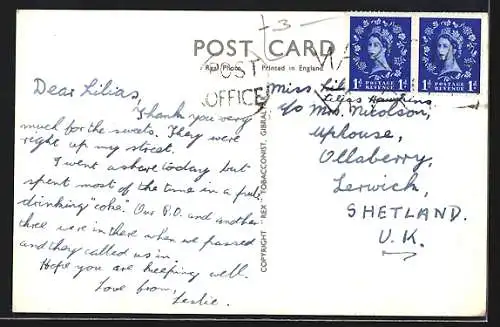 POST CARD
Real Photo Printed in England
POST
OFFICE
Dear Lilias,
Thank you very
much for the sweets. They were
right up my street.
I went ashore today but
spent most of the time in a pub
drinking "coke". Our P.O. and another
three were in there when we passed
and they called us in.
Hope you are keeping well.
Love from,
Leslie.
COPYRIGHT "REX" TOBACCONIST, GIBRAL
1d POSTAGE REVENUE 1d
1d POSTAGE REVENUE 1d
Miss
Lilias Hawkins
c/o Mrs. Nicolson,
Uphouse,
Ollaberry,
Lerwick,
SHETLAND.
U.K.